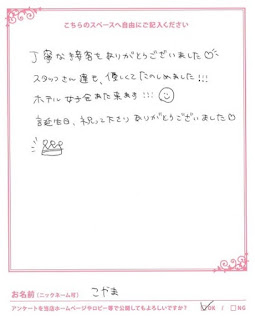 こちらのスペースへ自由にご記入ください
丁寧な接客をありがとうございました♡
スタッフさん達も、優しくてたのしめました!!!
ホテル女子会また来ます!!!
誕生日、祝って下さりありがとうございました♡
お名前(ニックネーム可) こやま
アンケートを当店ホームページやロビー等で公開してもよろしいですか? ☑OK / □NG